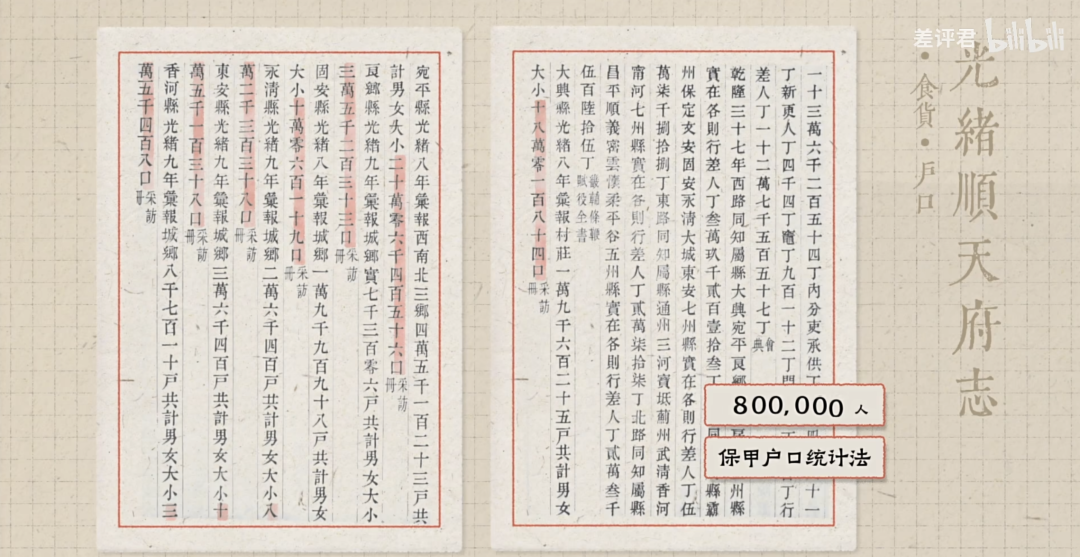 差评君 bilibili
光緒順天府志
·食貨·戶口
一十三萬六千二百五十四丁內分吏承供丁
丁新更人丁四千四丁竈丁九百一十二丁門
差人丁一十二萬七千五百五十七丁會典
乾隆三十七年西路同知屬縣大興宛平良鄉 州縣
實在各則行差人丁叁萬玖千貳百壹拾叁丁 同 縣霸
州保定文安固安永清大城東安七州縣實在各則行差人丁伍
萬柒千捌拾捌丁東路同知屬縣通州三河寶坻薊州武清香河
甯河七州縣實在各則行差人丁貳萬柒拾柒丁北路同知屬縣
昌平順義密雲懷柔平谷五州縣實在各則行差人丁貳萬叁千
伍百陸拾伍丁畿輔條鞭賦役全書
大興縣光緒八年彙報村莊一萬九千六百二十五戶共計男女
大小十八萬零一百八十四口采訪冊
800,000 人
保甲户口统计法
宛平縣光緒八年彙報西南北三鄉四萬五千一百二十三戶共
計男女大小二十萬零六千四百五十六口采訪冊
良鄉縣光緒九年彙報城鄉實七千三百零六戶共計男女大小
三萬五千二百三十三口采訪冊
固安縣光緒八年彙報城鄉一萬九千九百九十八戶共計男女
大小十萬零六百一十九口采訪冊
永清縣光緒九年彙報城鄉二萬六千四百戶共計男女大小八
萬二千三百三十八口采訪冊
東安縣光緒九年彙報城鄉三萬六千四百戶共計男女大小十
萬五千一百三十八口采訪冊
香河縣光緒九年彙報城鄉八千七百一十戶共計男女大小三
萬五千四百八口采訪冊